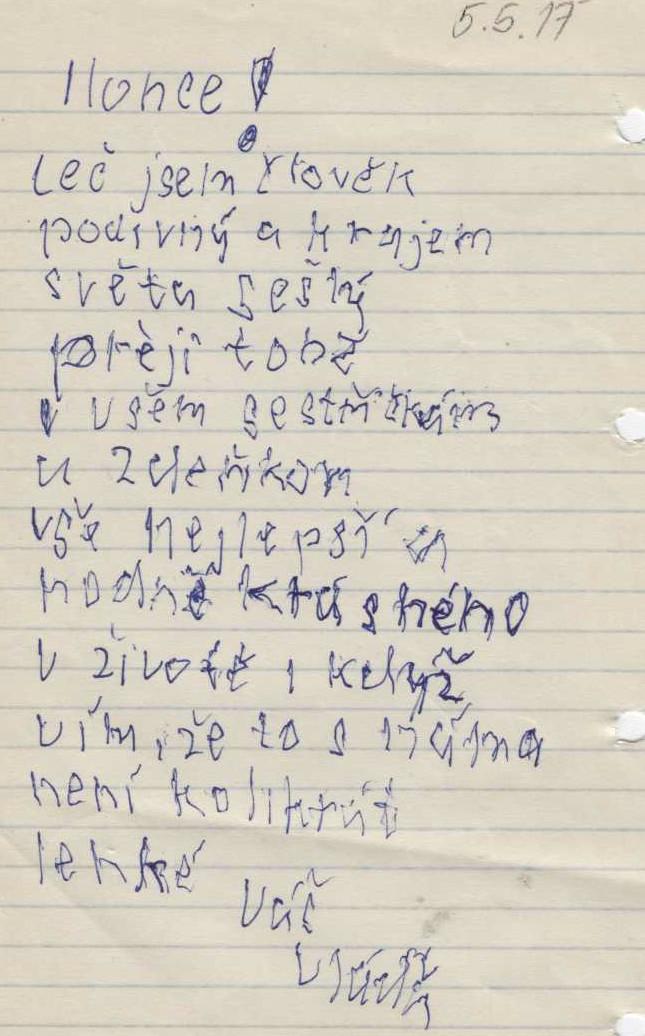 5.5.17
Ilonce!
Leč jsem člověk
podivný a krajem
světa sešlý
přeji tobě
i všem sestřičkám
a Zdeňkom
vše nejlepší a
hodně krásného
v životě, i když
vím, že to s náma
není kolikrát
lehké
Váš